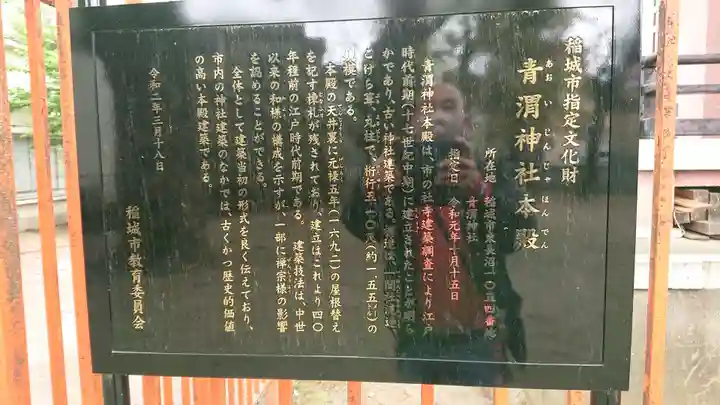 稲城市指定文化財
青渭神社本殿
あおいじんじゃほんでん
所在地 稲城市東長沼一〇五四番地
青渭神社
指定日 令和元年十月十五日
青渭神社本殿は、市の社寺建築調査により江戸
時代前期(十七世紀中期)に建立されたことが明ら
かであり、古い神社建築である。構造は、一間社流造
こけら葺、丸柱で、桁行五・一〇尺(約一・五五m)の
規模である。
本殿の天井裏に元禄五年(一六九二)の屋根替え
を記す棟札が残されており、建立はこれより四〇
年程前の江戸時代前期である。 建築技法は、中世
以来の和様の構成を示すが、一部に禅宗様の影響
を認めることができる。
全体として建築当初の形式を良く伝えており、
市内の神社建築のなかでは、古くかつ歴史的価値
の高い本殿建築である。
令和二年三月十八日
稲城市教育委員会